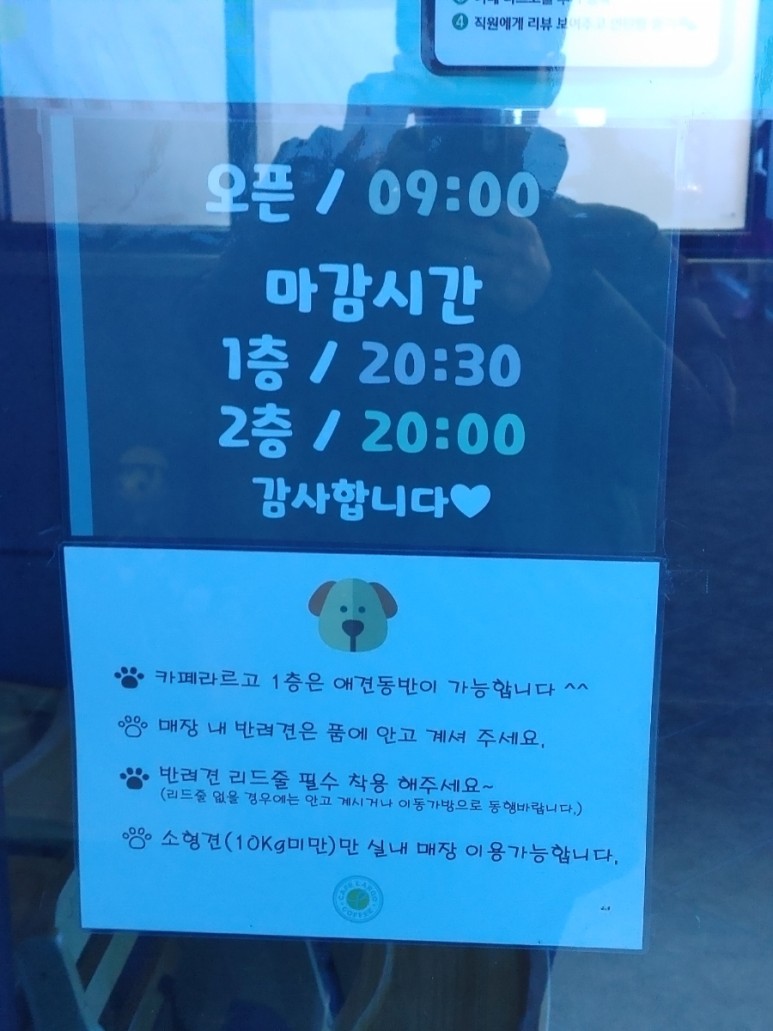 ④ 직원에게 리뷰
오픈 / 09:00
마감시간
1층 / 20:30
2층 / 20:00
감사합니다♥
카페라르고 1층은 애견동반이 가능합니다 ^^
매장 내 반려견은 품에 안고 계셔 주세요.
반려견 리드줄 필수 착용 해주세요~
(리드줄 없을 경우에는 안고 계시거나 이동가방으로 동행바랍니다.)
소형견(10Kg미만)만 실내 매장 이용가능합니다.
CAFE LARGO
COFFEE